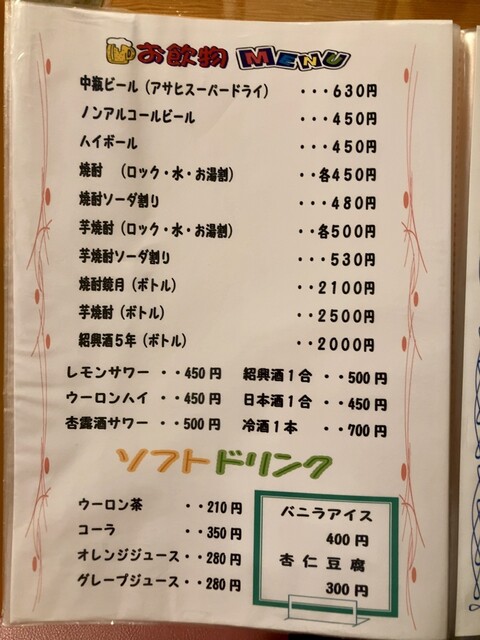 お飲物 MENU
中瓶ビール（アサヒスーパードライ） ･･･630円
ノンアルコールビール ･･･450円
ハイボール ･･･450円
焼酎 （ロック・水・お湯割） ･･各450円
焼酎ソーダ割り ･･･480円
芋焼酎（ロック・水・お湯割） ･･各500円
芋焼酎ソーダ割り ･･･530円
焼酎鏡月（ボトル） ･･2100円
芋焼酎（ボトル） ･･2500円
紹興酒５年（ボトル） ･･2000円
レモンサワー ･･450円 紹興酒１合 ･･500円
ウーロンハイ ･･450円 日本酒１合 ･･450円
杏露酒サワー ･･500円 冷酒１本 ･･700円
ソフトドリンク
ウーロン茶 ･･210円
コーラ ･･350円
オレンジジュース ･･280円
グレープジュース ･･280円
バニラアイス
400円
杏仁豆腐
300円